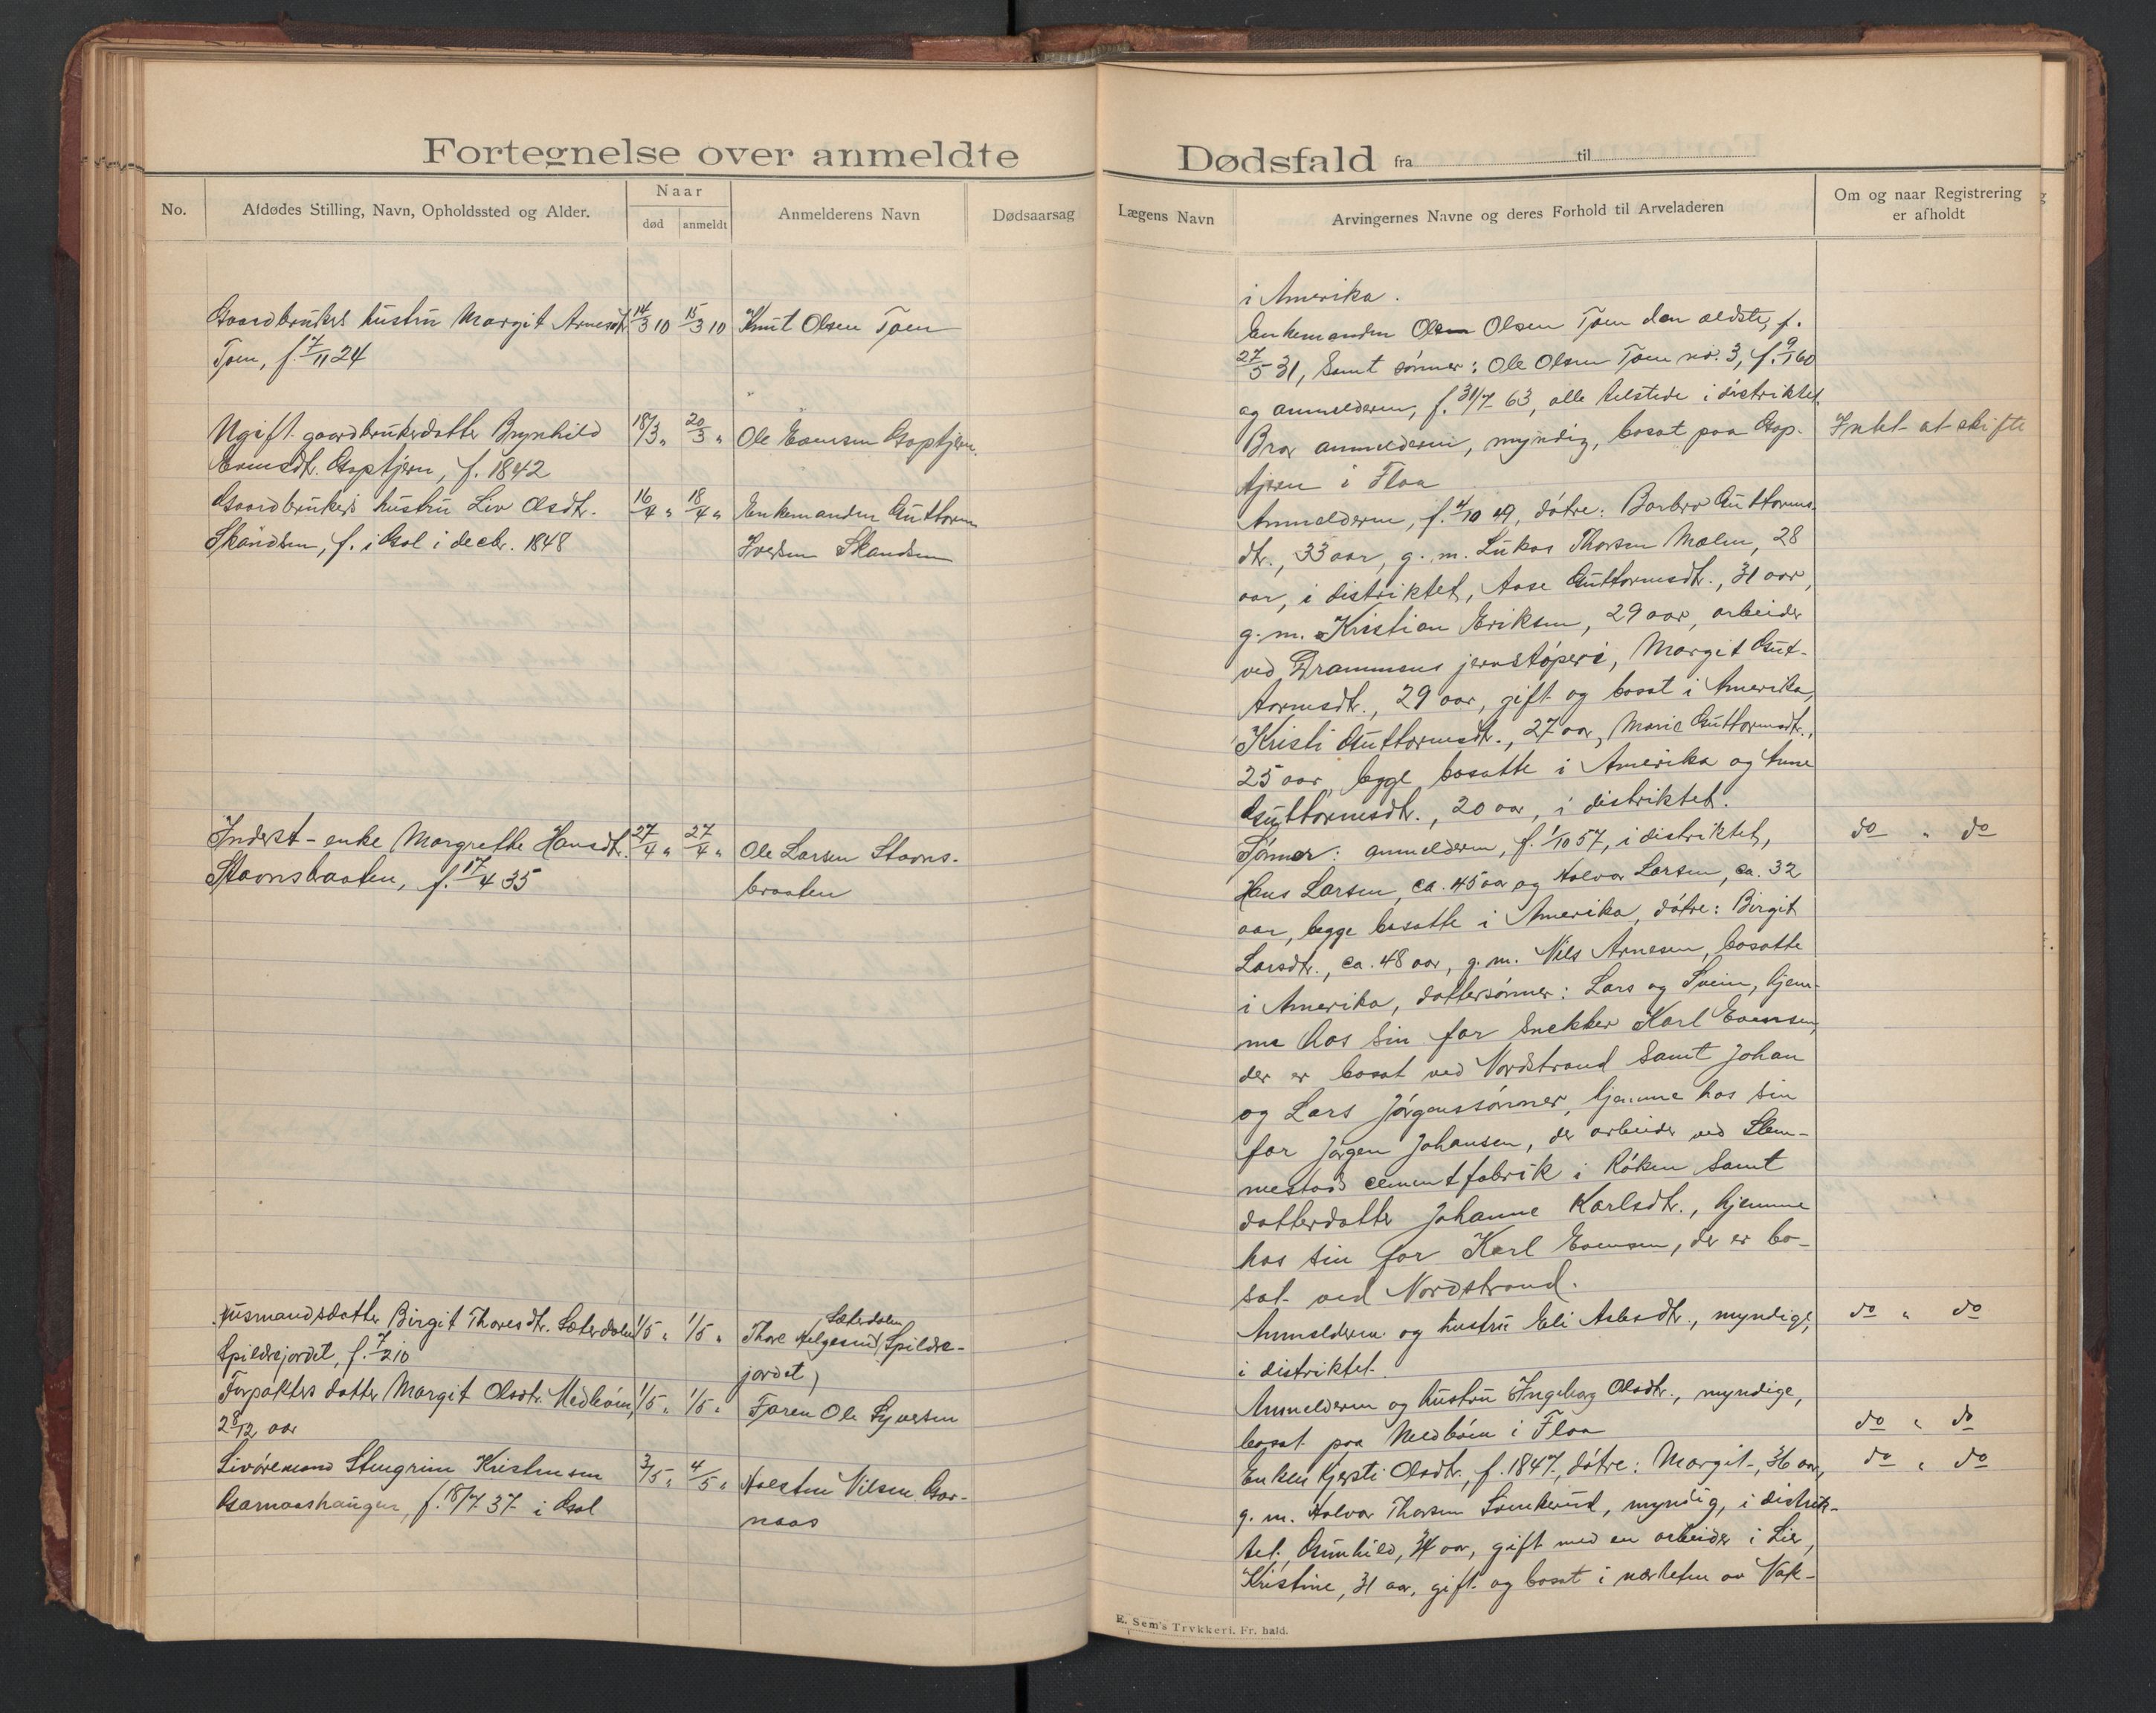 Fortegnelse over anmeldte
No.
Afdødes Stilling, Navn, Opholdssted og Alder.
Naar
død
anmeldt
Anmelderens Navn
Dødsaarsag
Gaardbrukers hustru Margit Arnesdt. 14/3 10 15/3 10 Knut Olsen Toen
Toen, f. 7/11 24
Ugift gaardbrukerdatter Brynhild 18/3 " 20/3 " Ole Evensen Gaptjern.
Evensdt. Gaptjern, f. 1842
Gaardbrukers hustru Liv Olsdt. 16/4 " 18/4 " Enkemanden Guttorm
Skandsen, f. i Gol i decbr. 1848 Iversen Skandsen
Inderst-enke Margrethe Hansdt. 27/4 " 27/4 " Ole Larsen Stavns-
Stavnsbraaten, f. 17/4 35 braaten
Husmandsdatter Birgit Thoresdt. Sæterdalen 1/5 " 1/5 " Thore Helgesen Sæterdalen (Spildre-
Spildrejordet, f. 7/2 10 jordet)
Forpakters datter Margit Olsdtr. Medbøen, 1/5 " 1/5 " Faren Ole Syversen
2 8/12 aar
Livøremand Stengrim Kristensen 3/5 " 4/5 " Halsten Nilsen Gar-
Garnaashaugen, f. 18/7 37 i Gol naas
Dødsfald fra til
Lægens Navn
Arvingernes Navne og deres Forhold til Arveladeren
Om og naar Registrering
er afholdt
i Amerika.
Enkemanden Olsen Olsen Toen den ældste, f.
27/5 31, samt sønner: Ole Olsen Toen nr. 3, f. 9/1 60
og anmelderen, f. 31/7 63, alle tilstede i distriktet.
Bror anmelderen, myndig, bosat paa Gap- Intet at skifte
tjern i Flaa
Anmelderen, f. 4/10 49, døtre: Barbro Guttorms-
dt., 33 aar, g. m. Lukas Thorsen Mælen, 28
aar, i distriktet, Aase Guttormsdt., 31 aar,
g. m. Kristian Eriksen, 29 aar, arbeider
ved Drammens jernstøperi, Margit Gut-
tormsdt., 29 aar, gift og bosat i Amerika,
Kristi Guttormsdt., 27 aar, Marie Guttormsdt.,
25 aar, begge bosatte i Amerika og Anne
Guttormsdt., 20 aar, i distriktet.
Sønner: anmelderen, f. 1/10 57, i distriktet, do " do
Hans Larsen, ca. 45 aar og Halvor Larsen, ca. 32
aar, begge bosatte i Amerika, døtre: Birgit
Larsdt., ca. 48 aar, g. m. Nils Arnesen, bosatte
i Amerika, dattersønner: Lars og Svein, hjem-
me hos sin far snekker Karl Evensen,
der er bosat ved Nordstrand samt Johan
og Lars Jørgenssønner, hjemme hos sin
far Jørgen Johansen, der arbeider ved Slem-
mestads cementfabrik i Røken samt
datterdatter Johanne Karlsdt., hjemme
hos sin far Karl Evensen, der er bo-
sat ved Nordstrand.
Anmelderen og hustru Eli Aslesdt., myndige, do " do
i distriktet.
Anmelderen og hustru Ingeborg Olsdt., myndige,
bosat paa Medbøen i Flaa do " do
Enken Kjersti Olsdt., f. 1847, døtre: Margit, 36 aar, do " do
g. m. Halvor Thorsen Svenkerud, myndig, i distrik-
tet, Gunhild, 34 aar, gift med en arbeider i Lier,
Kristine, 31 aar, gift og bosat i nærheten av Vak-
E. Sem's Trykkeri. Fr. hald.